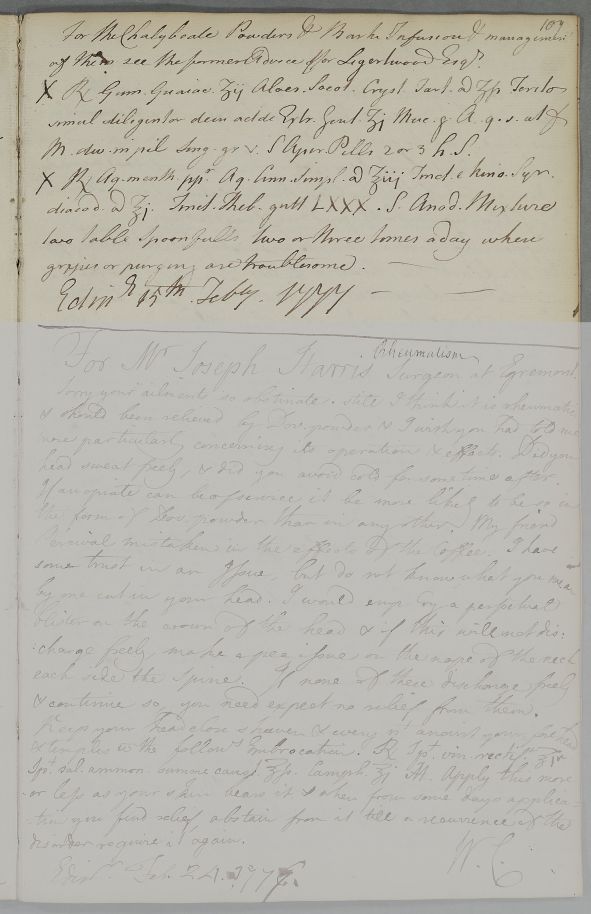 107
For the Chalybeate Powders & Bark Infusion & management
of them see the former Advice for Ligertwood Esqr.
X Rx Gum. Guaiac. ʒij Aloes. Socot. Cryst Tart. a ʒſs Terito
simul diligenter dein adde Extr. Gent. ʒj Muc. g. A. q. s. ut f
M. div. in pil sing. gr v. S Aper. Pills 2 or 3 h.S.
X Rx Aq. menth. ppr. Aq. Cinn. Simpl. a ℥iij Tinct. e kino. Syr.
diacod. a ℥j. Tinct. Theb. gutt LXXX. S. Anod. Mixture
two table spoonfulls two or three times a day when
gripes or purging are troublesome.
Edinr. 15th Feby. 1777
For Mr Joseph Harris Surgeon at Egremont.
Rheumatism
Sorry your ailments so obstinate. still I think it is rheumatic
& should been relieved by Dov. powder & I wish you had told me
more particularly concerning its operation & effects. Did you
head sweat freely, & did you avoid cold for some time after.
If an opiate can be of service it be more likely to be so in
the form of Dov. powder than in any other. My friend
Percival mistaken in the effects of the Coffee. I have
some trust in an Issue, but do not know what you mean
by one cut in your head. I would employ a perpetual
blister on the crown of the head & if this will not dis:
:charge freely, make a pea issue on the nape of the neck
each side the spine. If none of these discharge freely
& continue so, you need expect no relief from them.
Keep your head close shaven & every nt. anoint your forehead
& temples wt the followg Embrocation. Rx Spt. vin. rectif.
Spt. sal. ammon. cum calce caust. ʒſs. Camph. ʒj M. Apply this more
or less as your skin bears it & when from some days applica-
-tion you find relief abstain from it till a recurrence of the
disorder require it again.
W. C.
Edinr. Feb. 24. 1777.